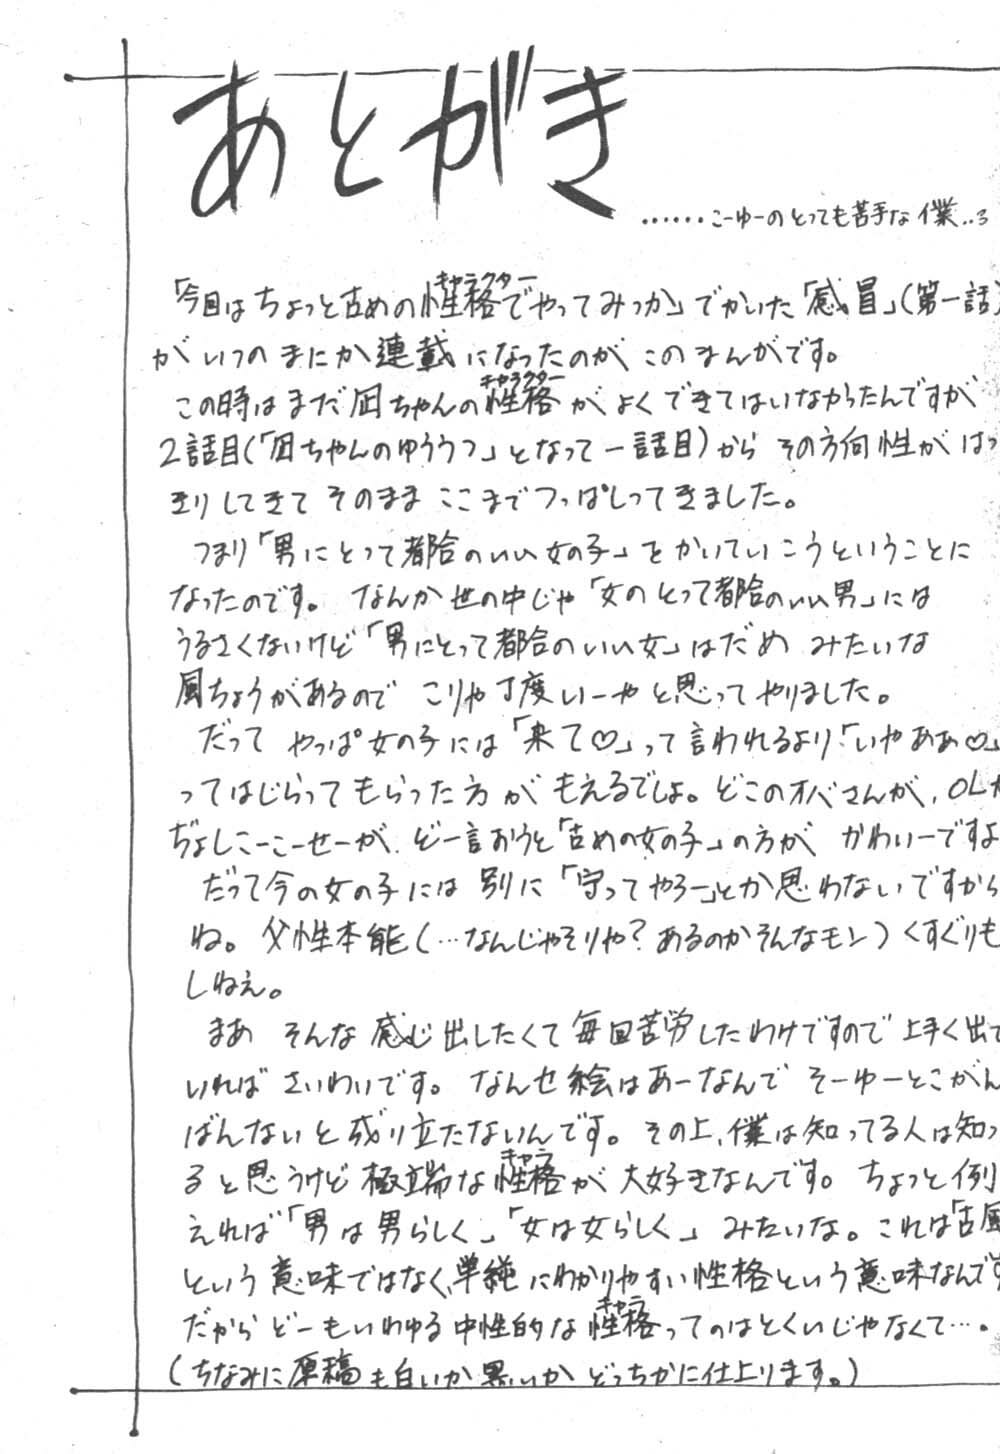 あとがき
……こーゆーのとっても苦手な僕‥3
「今回はちょっと古めの性格でやってみっか」でかいた「感冒」(第一話)
キャラクター
がいつのまにか連載になったのがこのまんがです。
この時はまだ凪ちゃんの性格がよくできてはいなかったんですが
キャラクター
2話目(「凪ちゃんのゆううつ」となって一話目)からその方向性がはっ
きりしてきてそのままここまでつっぱしってきました。
つまり「男にとって都合のいい女の子」をかいていこうということに
なったのです。なんか世の中じゃ「女のとって都合のいい男」には
うるさくないけど「男にとって都合のいい女」はだめみたいな
風ちょうがあるのでこりゃ丁度いーやと思ってやりました。
だってやっぱ女の子には「来て♡」って言われるより「いやああ♡」
ってはじらってもらった方がもえるでしょ。どこのオバさんが、OLが
ぢょしこーこーせーが、どー言おうと「古めの女の子」の方がかわいーですよ
だって今の女の子には別に「守ってやろー」とか思わないですから
ね。父性本能(…なんじゃそりゃ?あるのかそんなモン)くすぐりも
しねえ。
まあそんな感じ出したくて毎回苦労したわけですので上手く出て
いればさいわいです。なんせ絵はあーなんでそーゆーとこがん
ばんないと成り立たないんです。その上、僕は知ってる人は知っ
ると思うけど極端な性格が大好きなんです。ちょっと例
キャラ
えれば「男は男らしく」「女は女らしく」みたいな。これは「古風
という意味ではなく、単純にわかりやすい性格という意味なんです
だからどーもいわゆる中性的な性格ってのはとくいじゃなくて…。
キャラ
(ちなみに原稿も白いか黒いかどっちかに仕上ります。)